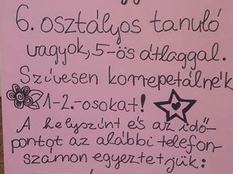 6. osztályos tanuló
vagyok, 5-ös átlaggal.
Szívesen korrepetálnék
1-2.-osokat!
A helyszínt és az idő-
pontot az alábbi telefon-
számon egyeztetjük: